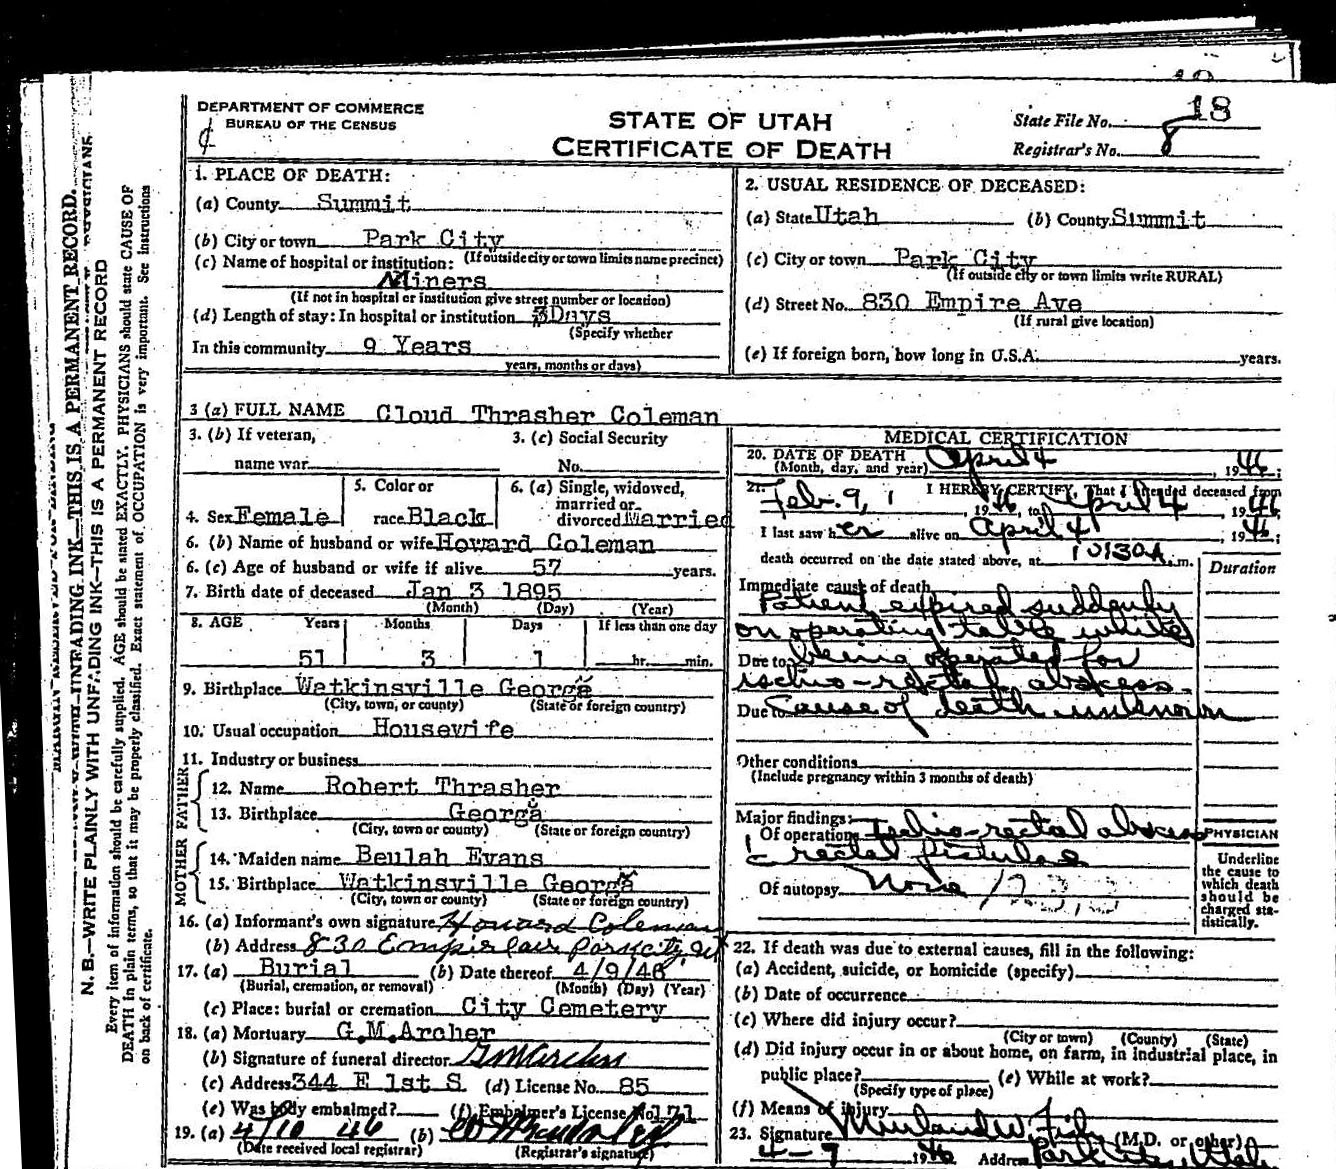 DEPARTMENT OF COMMERCE
BUREAU OF THE CENSUS
STATE OF UTAH
CERTIFICATE OF DEATH
State File No. 18
Registrar's No. 8
1. PLACE OF DEATH:
(a) County Summit
(b) City or town Park City
(If outside city or town limits name precinct)
(c) Name of hospital or institution:
Miners
(If not in hospital or institution give street number or location)
(d) Length of stay: In hospital or institution 3Days
(Specify whether
In this community 9 Years
years, months or days)
2. USUAL RESIDENCE OF DECEASED:
(a) State Utah (b) County Summit
(c) City or town Park City
(If outside city or town limits write RURAL)
(d) Street No. 830 Empire Ave
(If rural give location)
(e) If foreign born, how long in U.S.A. years.
3 (a) FULL NAME Cloud Thrasher Coleman
3. (b) If veteran,
name war
3. (c) Social Security
No.
4. Sex Female
5. Color or
race Black
6. (a) Single, widowed,
married or
divorced Married
6. (b) Name of husband or wife Howard Coleman
6. (c) Age of husband or wife if alive 57 years.
7. Birth date of deceased Jan 3 1895
(Month) (Day) (Year)
8. AGE Years Months Days If less than one day
51 3 1 hr. min.
9. Birthplace Watkinsville Georga
(City, town, or county) (State or foreign country)
10. Usual occupation Housewife
11. Industry or business
FATHER
12. Name Robert Thrasher
13. Birthplace Georga
(City, town or county) (State or foreign country)
MOTHER
14. Maiden name Beulah Evans
15. Birthplace Watkinsville Georga
(City, town or county) (State or foreign country)
16. (a) Informant's own signature Howard Coleman
(b) Address 830 Empire ave Park City, Ut
17. (a) Burial (b) Date thereof 4/9/46
(Burial, cremation, or removal) (Month) (Day) (Year)
(c) Place: burial or cremation City Cemetery
18. (a) Mortuary G.M.Archer
(b) Signature of funeral director GM Archer
(c) Address 344 E 1st S (d) License No. 85
(e) Was body embalmed? (f) Embalmer's License No. 171
19. (a) 4/10 46 (b)
(Date received local registrar) (Registrar's signature)
MEDICAL CERTIFICATION
20. DATE OF DEATH
(Month, day, and year) April 4, 1946;
21. I HEREBY CERTIFY, That I attended deceased from
Feb. 9, 1946, to April 4 1946
I last saw her alive on April 4, 1946;
death occurred on the date stated above, at 10:30A.m.
Duration
Immediate cause of death
Patient expired suddenly
on operating table while
Due to being operated for
ischio-rectal abscess.
Due to Cause of death unknown
Other conditions
(Include pregnancy within 3 months of death)
Major findings:
Of operation Ischio-rectal abscess
& rectal fistulae
Of autopsy None
PHYSICIAN
Underline
the cause to
which death
should be
charged sta-
tistically.
22. If death was due to external causes, fill in the following:
(a) Accident, suicide, or homicide (specify)
(b) Date of occurrence
(c) Where did injury occur?
(City or town) (County) (State)
(d) Did injury occur in or about home, on farm, in industrial place, in
public place? (e) While at work?
(Specify type of place)
(f) Means of injury
23. Signature (M.D. or other)
4-7 1946 Address Park City, Utah
N. B.—WRITE PLAINLY WITH UNFADING INK—THIS IS A PERMANENT RECORD
Every item of information should be carefully supplied. AGE should be stated EXACTLY. PHYSICIANS should state CAUSE OF
DEATH in plain terms, so that it may be properly classified. Exact statement of OCCUPATION is very important. See instructions
on back of certificate.